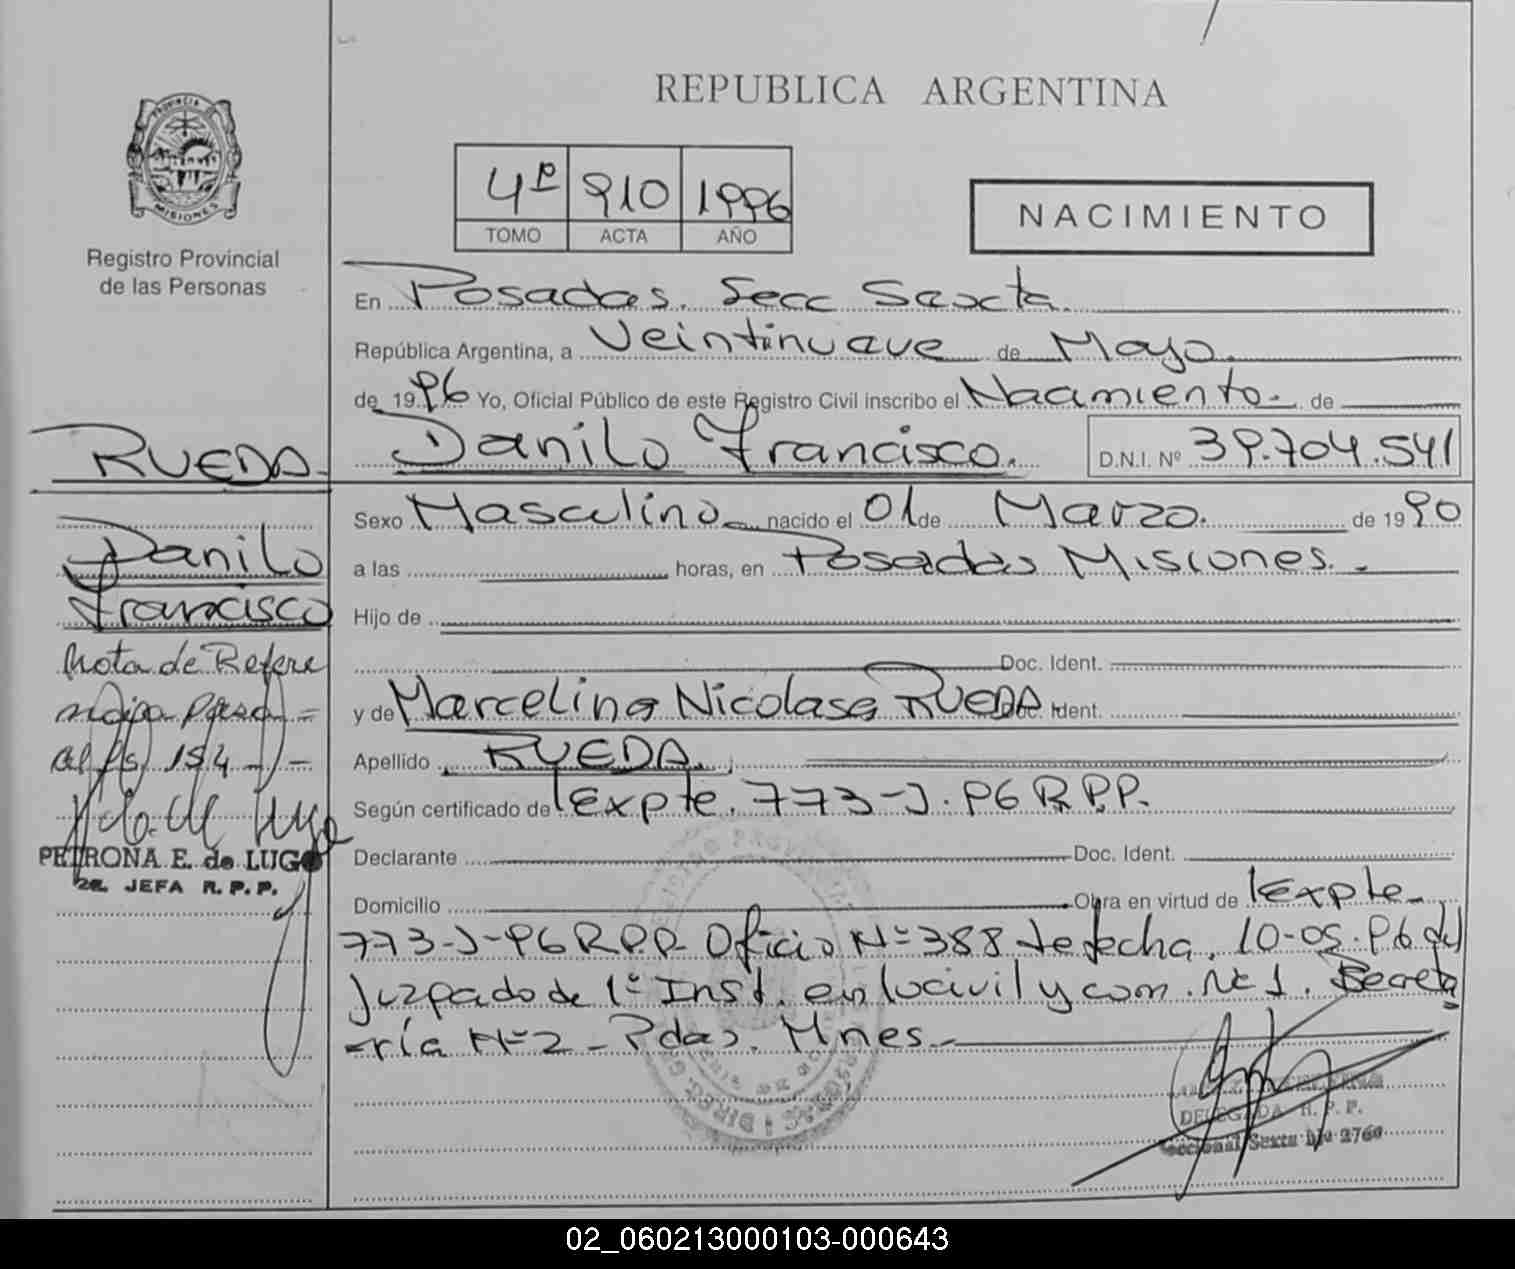 REPUBLICA ARGENTINA
PROVINCIA
MISIONES
Registro Provincial
de las Personas
4º 910 1996
TOMO ACTA AÑO
NACIMIENTO
En Posadas. Secc Sexta
República Argentina, a Veintinueve de Mayo.
de 1996 Yo, Oficial Público de este Registro Civil inscribo el Nacimiento. de
RUEDA Danilo Francisco. D.N.I. Nº 39.704.541
Danilo
Francisco
Nota de Refere
ncia Pasa
al fs 154
PETRONA E. de LUGO
2a. JEFA R. P. P.
Sexo Masculino nacido el 01 de Marzo. de 1990
a las horas, en Posadas Misiones.
Hijo de
Doc. Ident.
y de Marcelina Nicolasa RUEDA Doc. Ident.
Apellido RUEDA.
Según certificado de Expte. 773-J-96 R.P.P.
Declarante Doc. Ident.
Domicilio Obra en virtud de Expte
773-J-96 R.P.P. Oficio Nº 388 de fecha. 10-05-96 del
Juzgado de 1º Inst. en lo civil y com. Nº 1. Secreta
-ría Nº 2 - Pdas. Mnes.
DELEGADA R. P. P.
Seccional Sexta
02_060213000103-000643